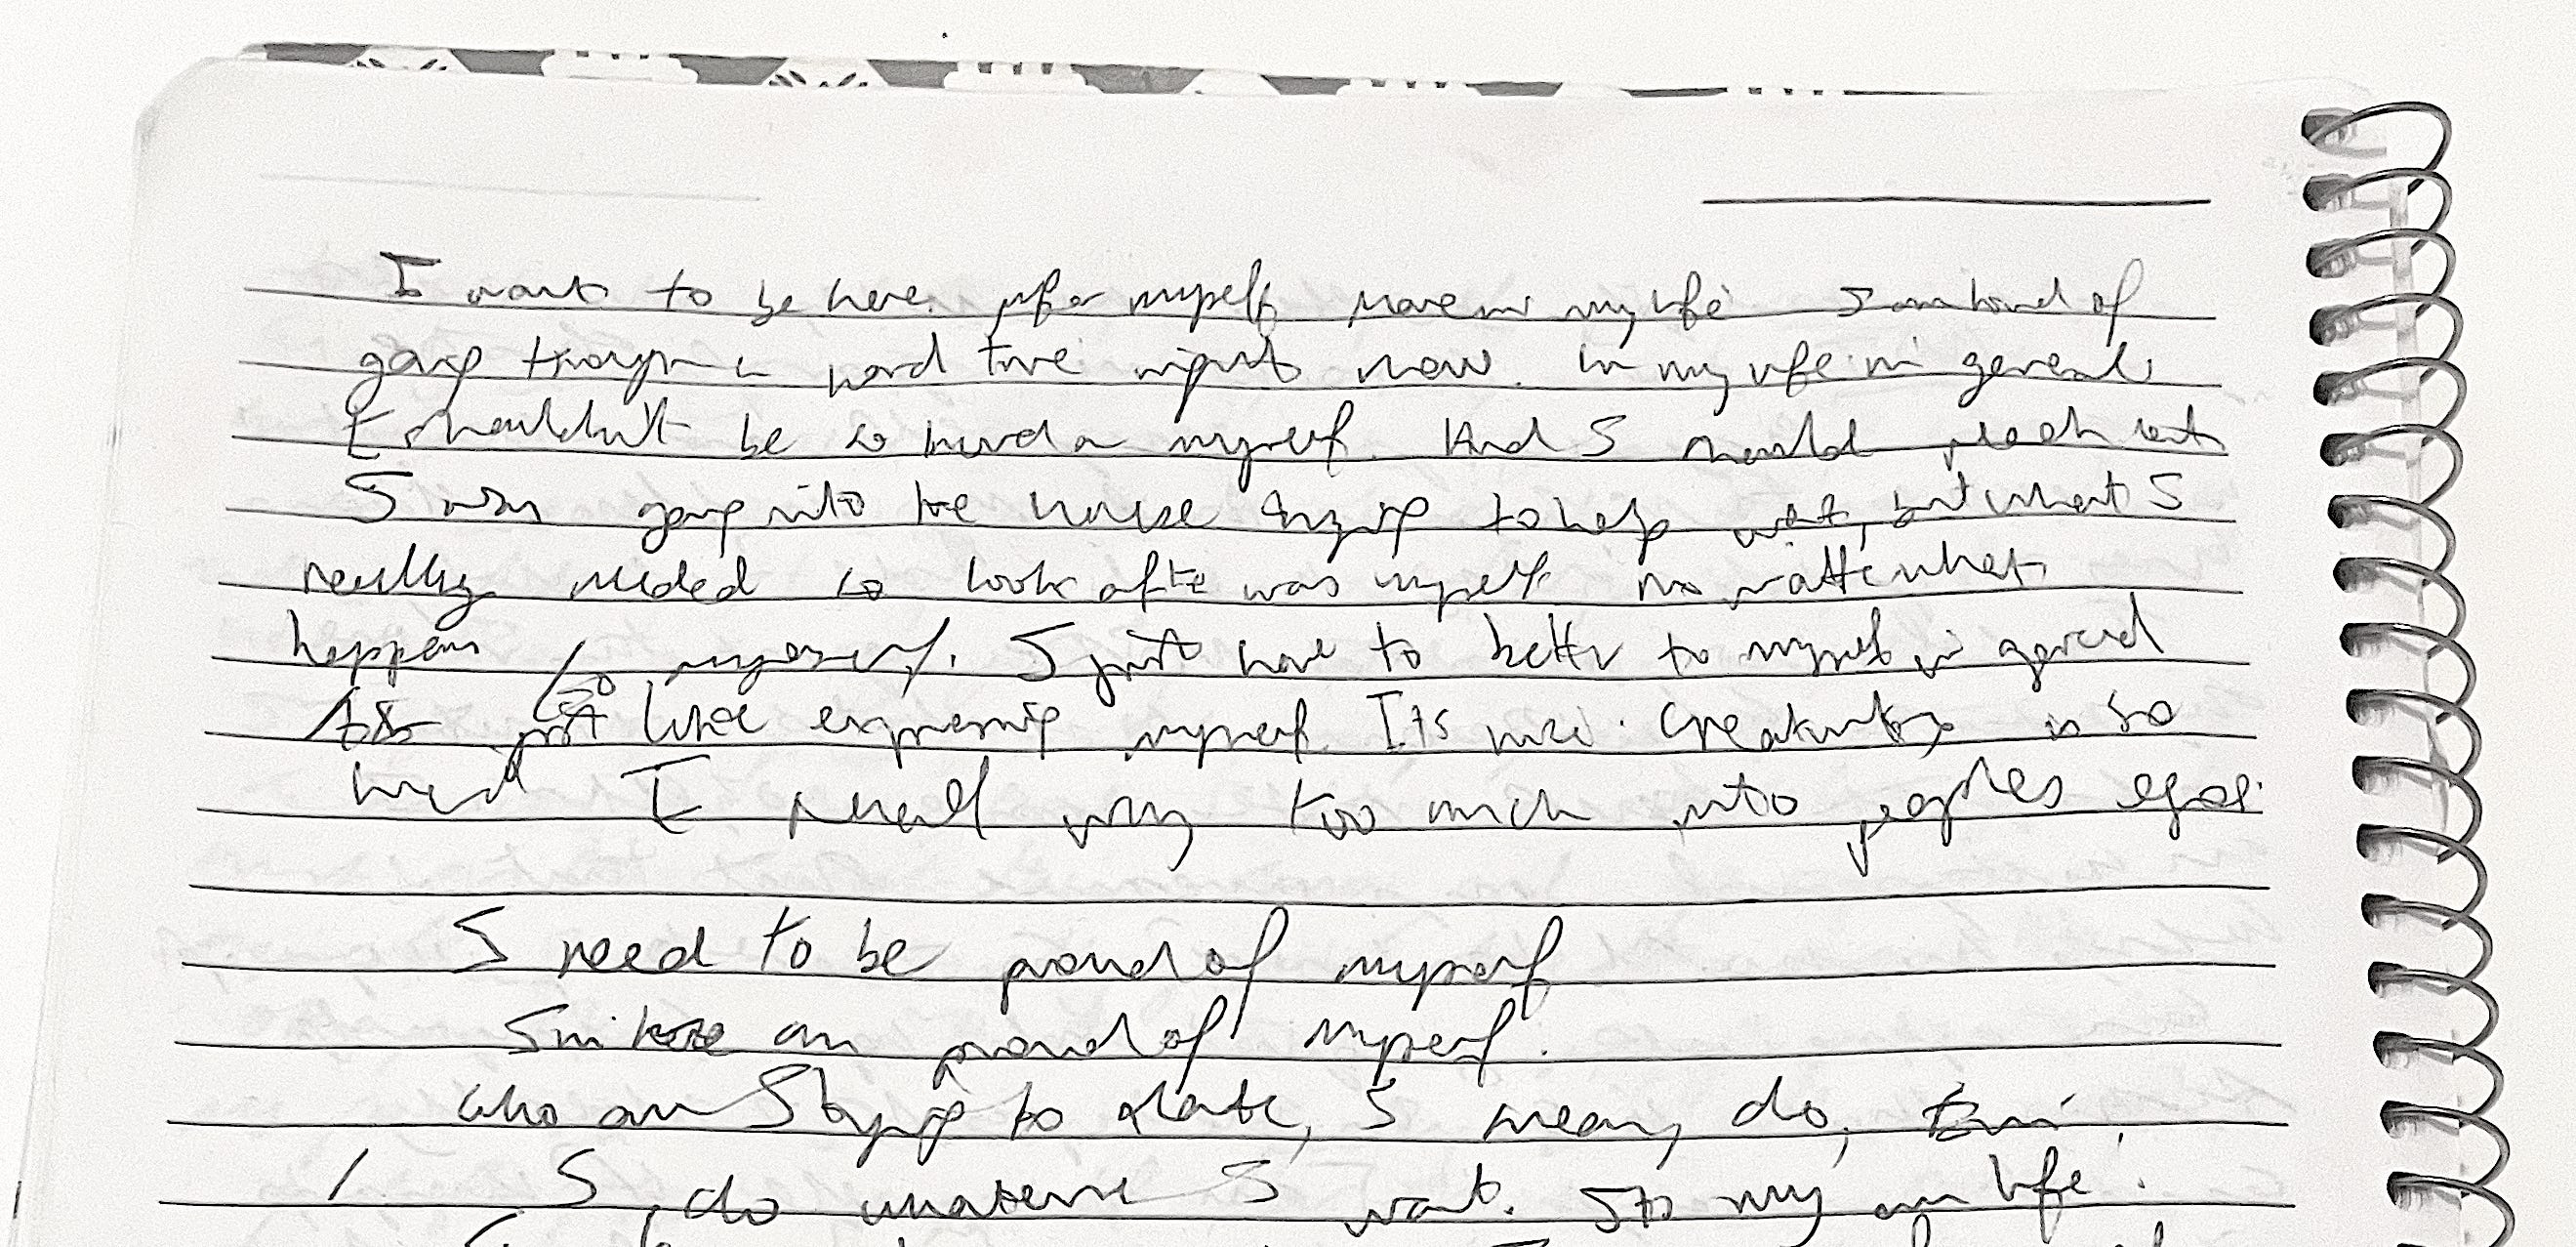 I want to be here for myself more in my life I am kind of
going through a hard time right now. In my life in general
I shouldn't be so hard on myself. And I should reach out
I was going into the house trying to help out, but what I
really needed to look after was myself no matter what
happens to myself. I just have to better to myself in general
just like expressing myself Its nice. Creativity is so
hard I read way too much into peoples egos.
I need to be proud of myself
I am proud of myself.
who am I trying to I mean, do,
I do whatever I want. Its my own life.